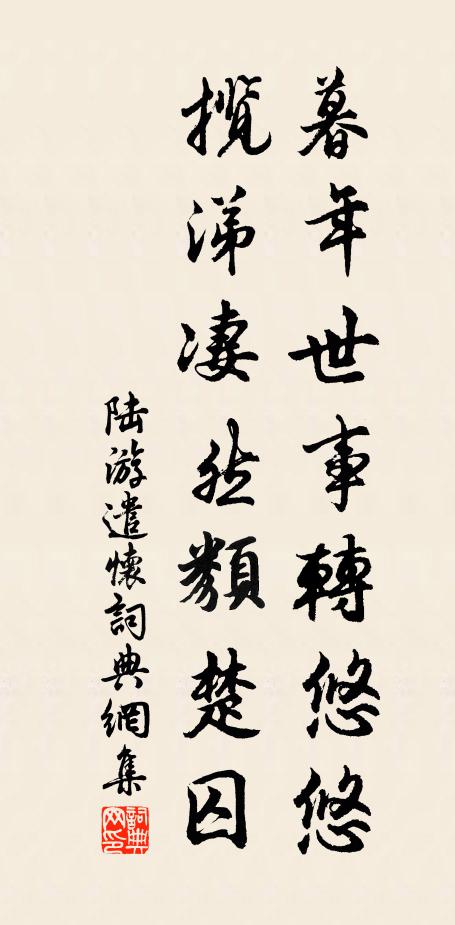 暮年世事轉悠悠
攬涕凄然類楚囚
陆游遣懷詞典網集
詞典
网印